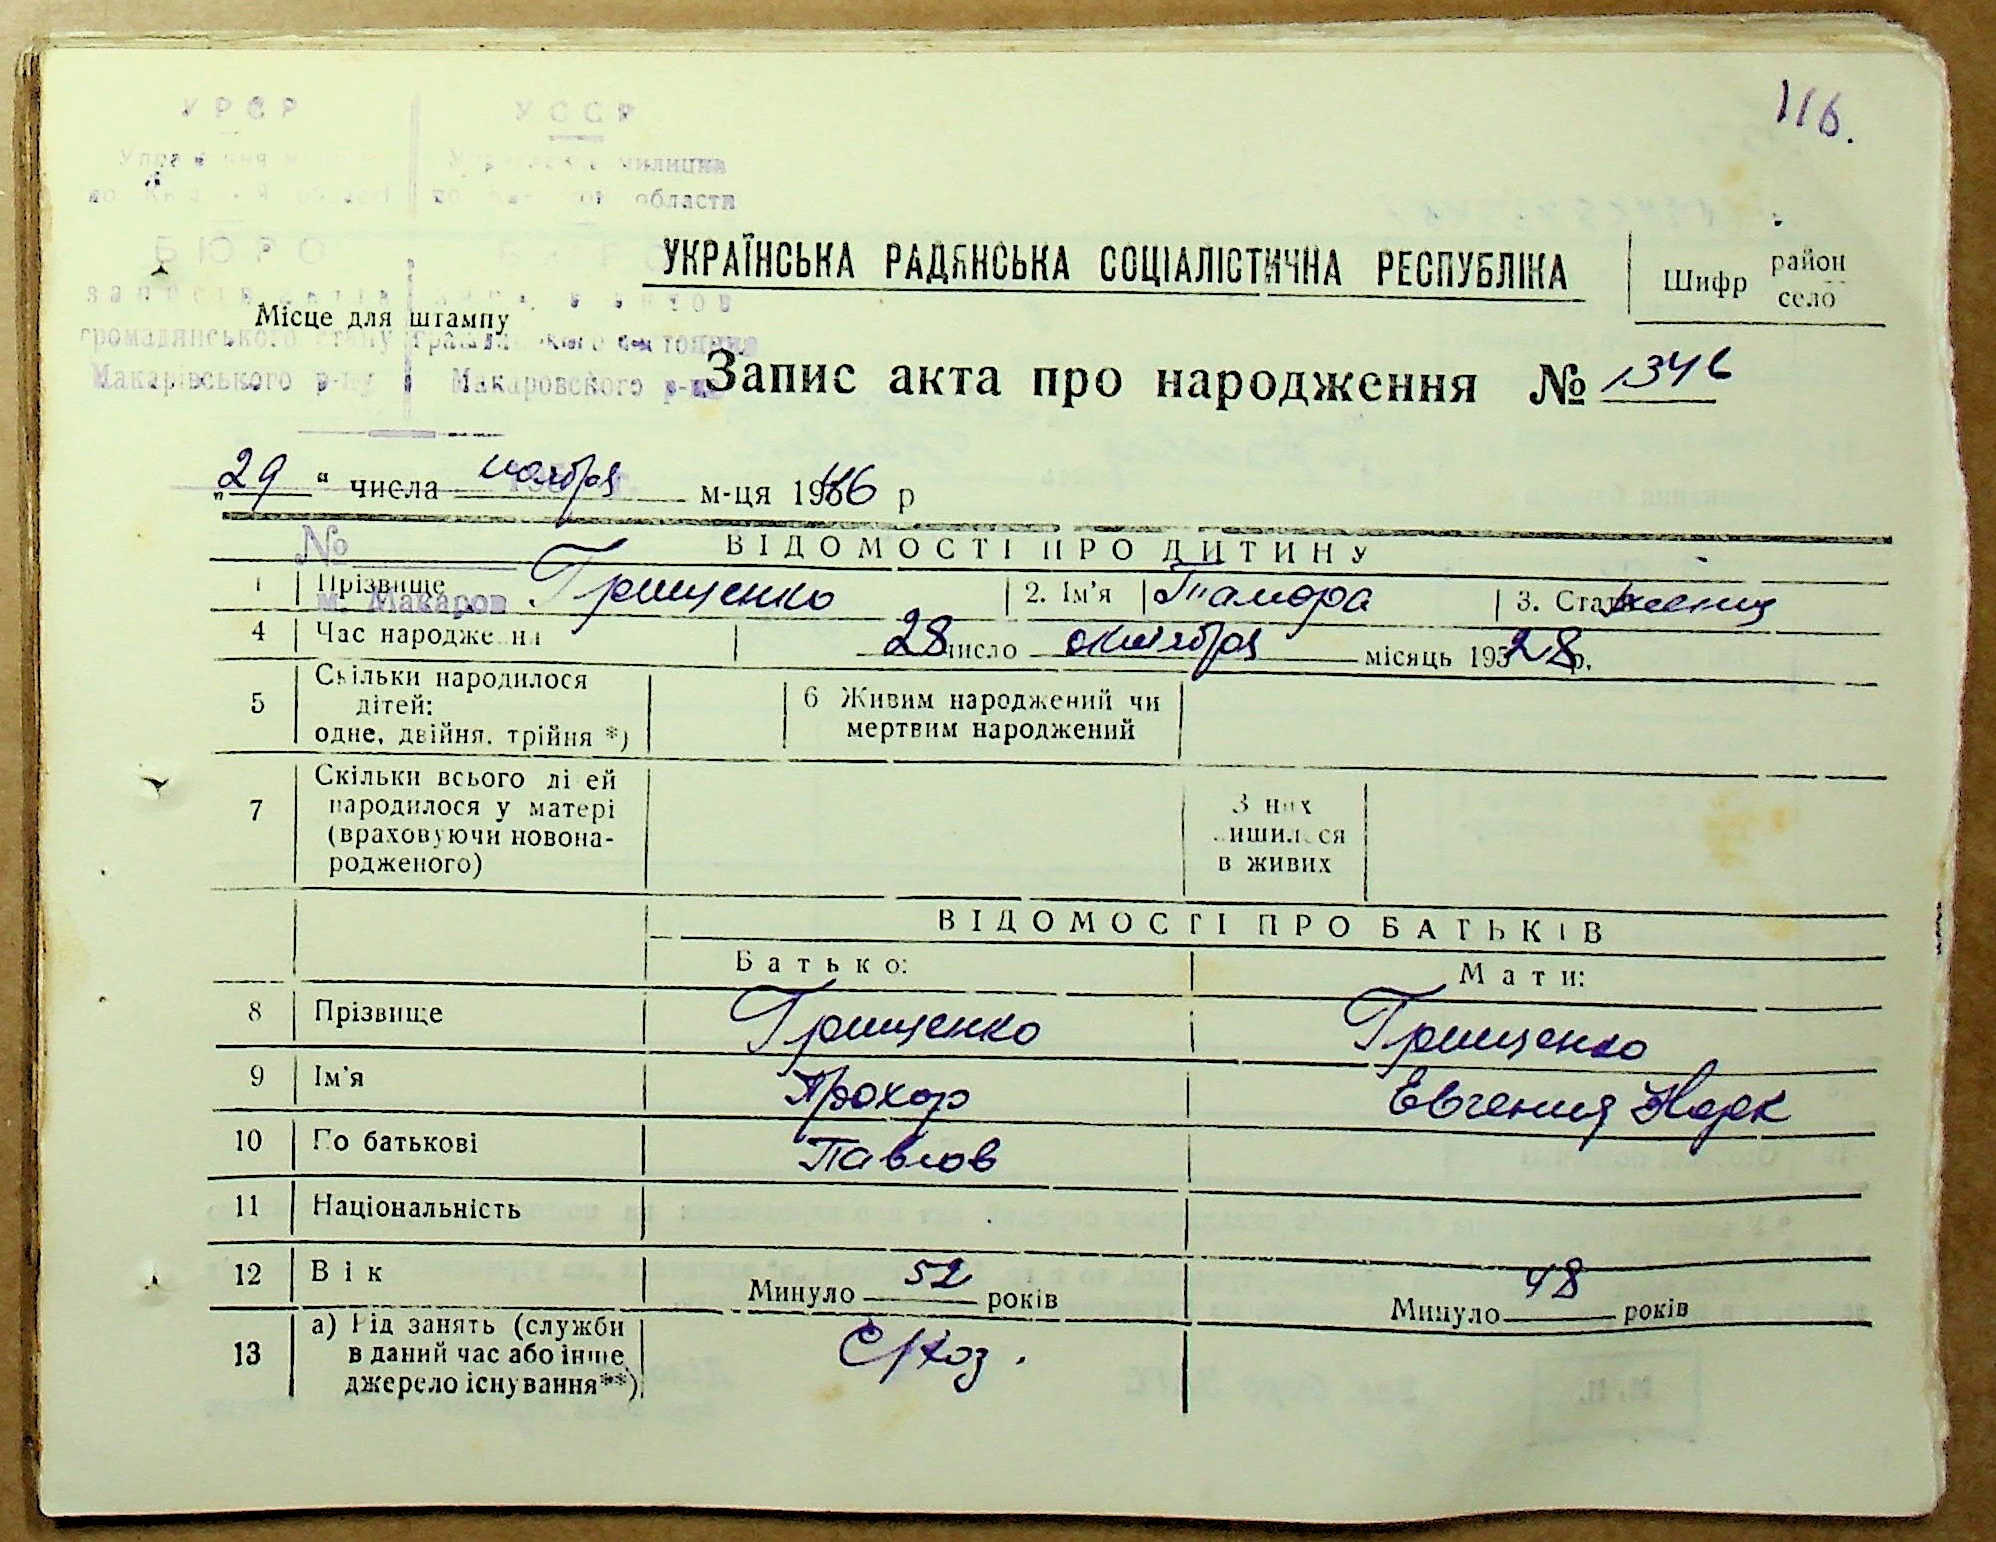 116.
УРСР УССР
милиции
области
БЮРО
Місце для штампу
громадянського стану
Макарівського р-ну Макаровского р-на
м. Макаров
№
УКРАЇНСЬКА РАДЯНСЬКА СОЦІАЛІСТИЧНА РЕСПУБЛІКА
Шифр район село
Запис акта про народження № 1346
„29" числа ноября м-ця 1946 р
ВІДОМОСТІ ПРО ДИТИНУ
1 Прізвище Грищенко 2. Ім'я Тамара 3. Стать женщ
4 Час народження 28 число октября місяць 1928 р.
5 Скільки народилося дітей: одне, двійня, трійня *) 6 Живим народжений чи мертвим народжений
7 Скільки всього дітей народилося у матері (враховуючи новонародженого) З них лишилося в живих
ВІДОМОСТІ ПРО БАТЬКІВ
Батько: Мати:
8 Прізвище Грищенко Грищенко
9 Ім'я Прохор Евгения
10 По батькові Павлов
11 Національність
12 Вік Минуло 52 років Минуло 48 років
13 а) Рід занять (служби в даний час або інше джерело існування**) С/хоз.